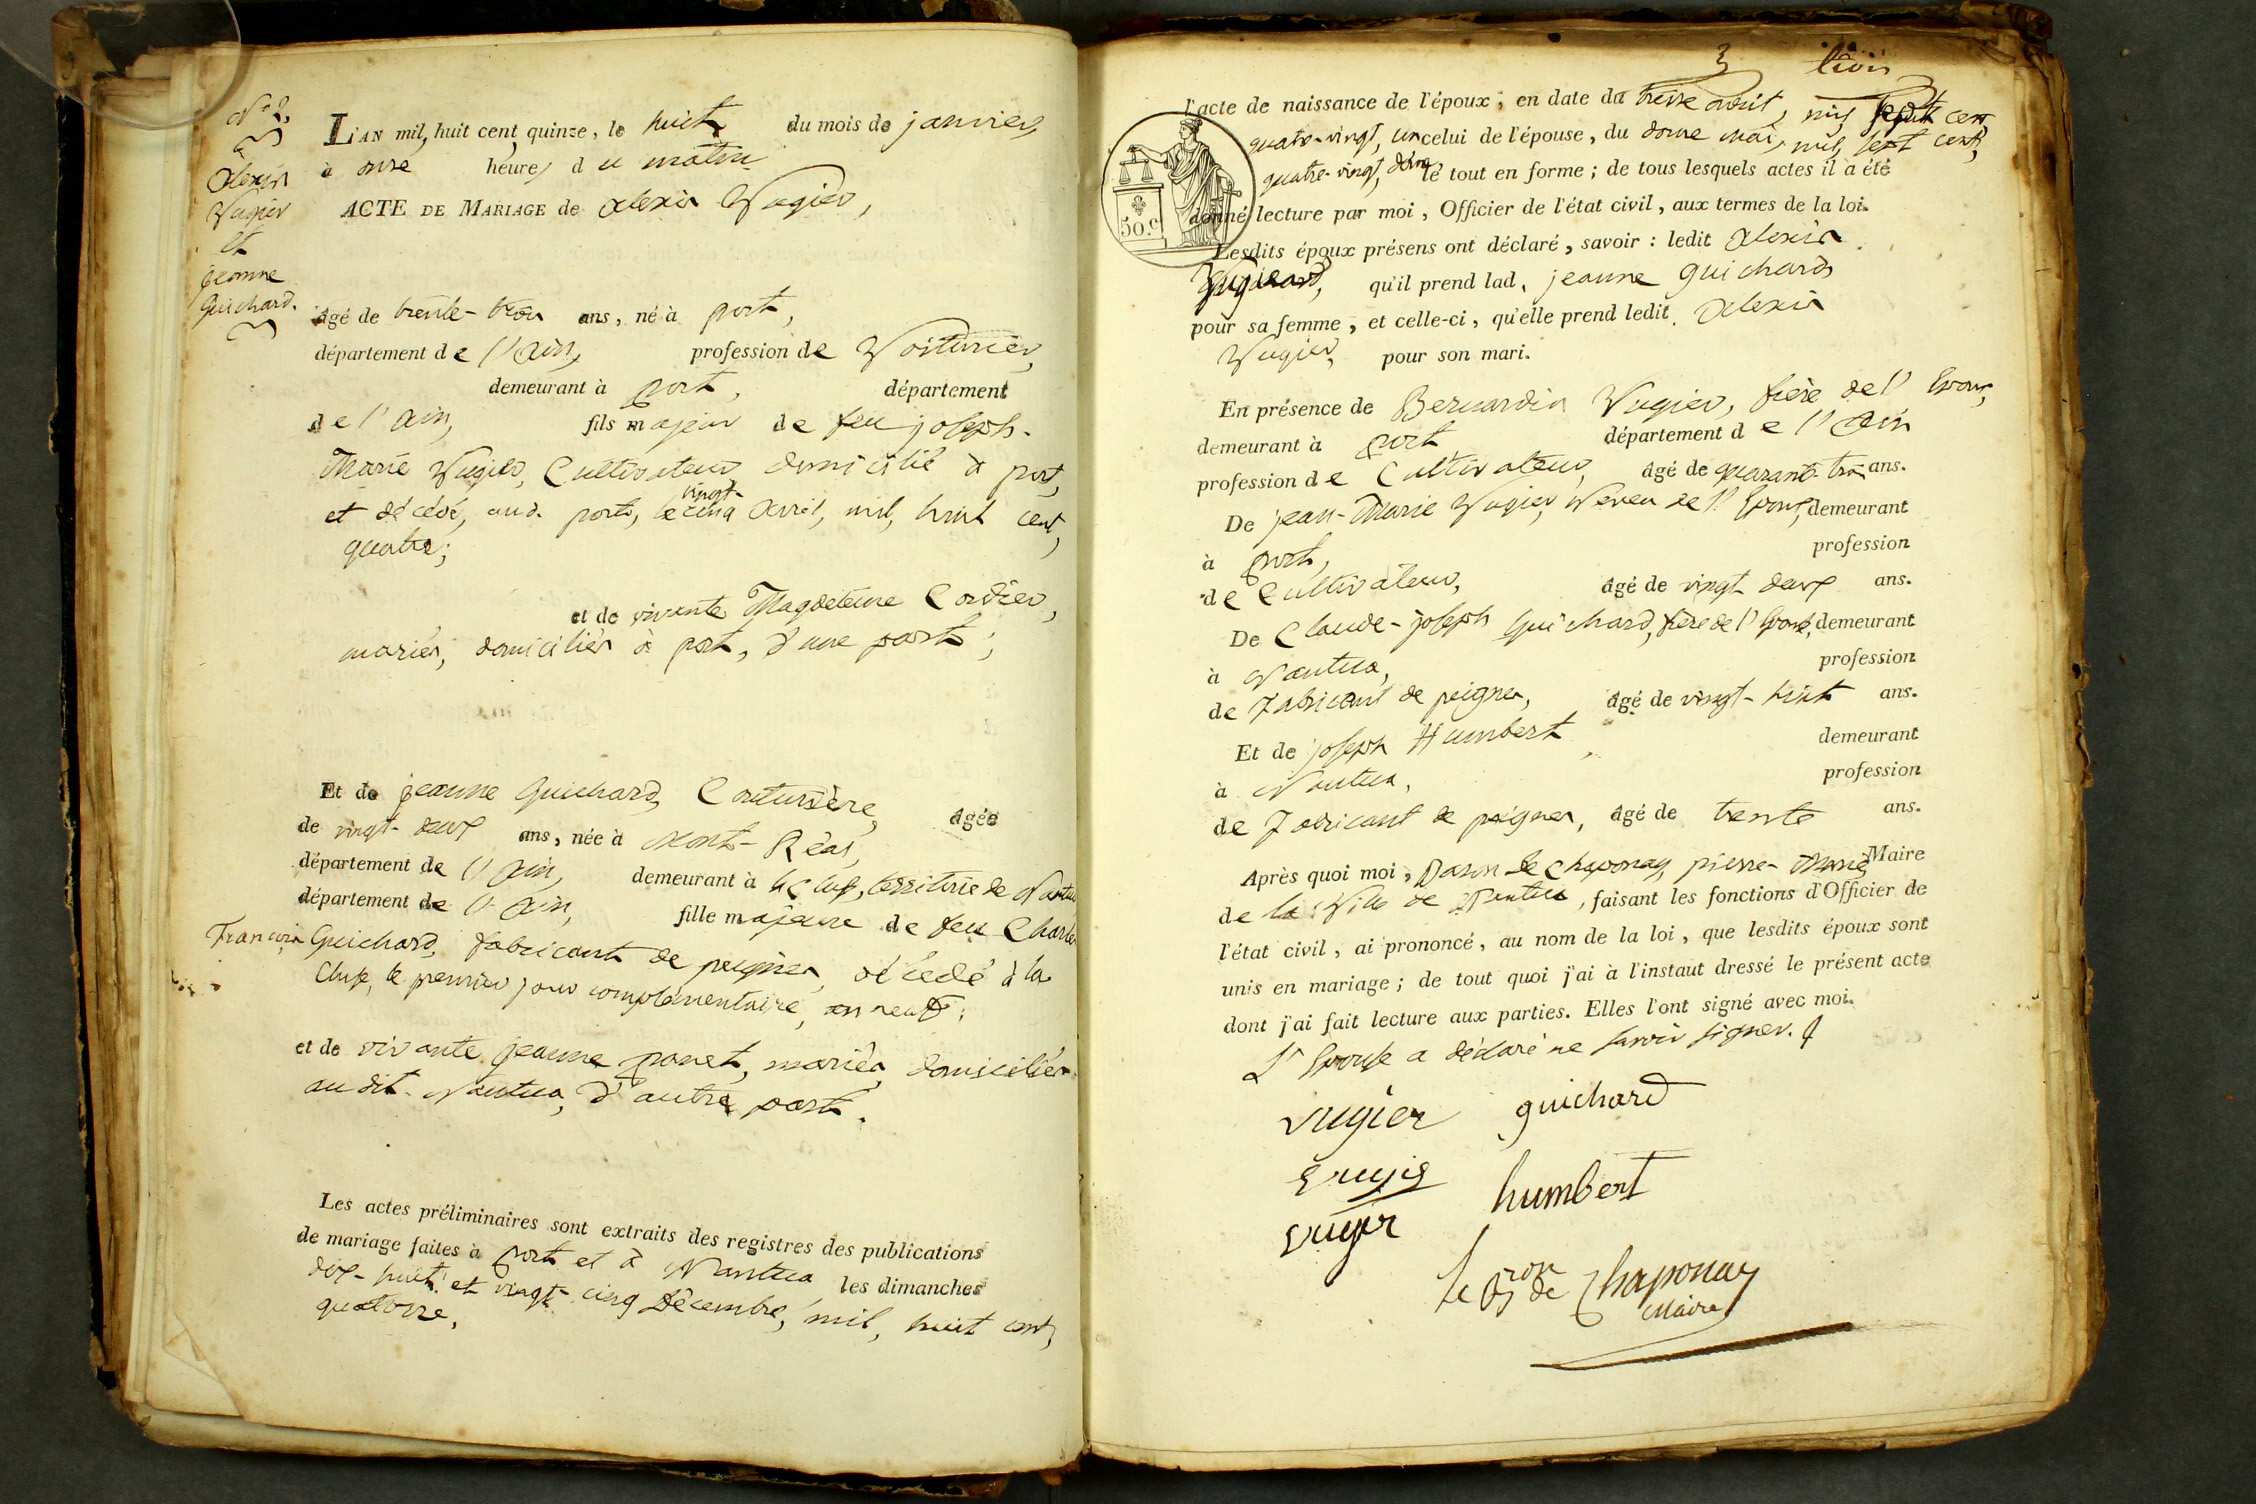 N° 2.
Alexis
Vugier
et
jeanne
Guichard.
L'AN mil, huit cent quinze, le huit du mois de janvier,
à onze heures du matin
ACTE DE MARIAGE de Alexis Vugier,
âgé de trente-trois ans, né à port,
département de l'Ain, profession de Voiturier,
demeurant à port, département
de l'Ain, fils majeur de feu joseph-
Marie Vugier, Cultivateur domicilié à port,
et décédé, aud. port, le vingt-cinq Avril, mil, huit cent,
quatre;
et de vivante Magdeleine Cordier,
mariés, domiciliés à port, d'une part;
Et de jeanne Guichard, Couturière, âgée
de vingt-deux ans, née à Mont-Réal,
département de l'Ain, demeurant à la Cluse, territoire de Nantua
département de l'Ain, fille majeure de feu Charles
François Guichard, fabricant de peignes, décédé à la
Cluse, le premier jour complémentaire, an neuf;
et de vivante jeanne ponet, mariés, domiciliés
audit Nantua, d'autre part.
Les actes préliminaires sont extraits des registres des publications
de mariage faites à port et à Nantua, les dimanches
dix-huit et vingt-cinq Décembre, mil, huit cent,
quatorze,
3 trois
l'acte de naissance de l'époux, en date du treize août, mil sept cent
quatre-vingt, un celui de l'épouse, du douze mai, mil, sept cent,
quatre-vingt, douze le tout en forme; de tous lesquels actes il a été
donné lecture par moi, Officier de l'état civil, aux termes de la loi.
50.c
Lesdits époux présens ont déclaré, savoir: ledit Alexis
qu'il prend lad. jeanne Guichard,
pour sa femme, et celle-ci, qu'elle prend ledit Alexis
Vugier, pour son mari.
En présence de Bernardin Vugier, frère de l'Epoux,
demeurant à port département de l'Ain
profession de Cultivateur, âgé de quarante-trois ans.
De jean-Marie Vugier, Neveu de l'Epoux, demeurant
à port, profession
de Cultivateur, âgé de vingt deux ans.
De Claude-joseph Guichard, frère de l'Epouse, demeurant
à Nantua, profession
de Fabricant de peignes, âgé de vingt-huit ans.
Et de joseph Humbert, demeurant
à Nantua, profession
de Fabricant de peignes, âgé de trente ans.
Après quoi moi, Baron de Chaponay, pierre-Marie, Maire
de la Ville de Nantua, faisant les fonctions d'Officier de
l'état civil, ai prononcé, au nom de la loi, que lesdits époux sont
unis en mariage; de tout quoi j'ai à l'instant dressé le présent acte
dont j'ai fait lecture aux parties. Elles l'ont signé avec moi.
L'Epouse a déclaré ne savoir signer.
vugier guichard
vugier humbert
le Bron de Chaponay
Maire